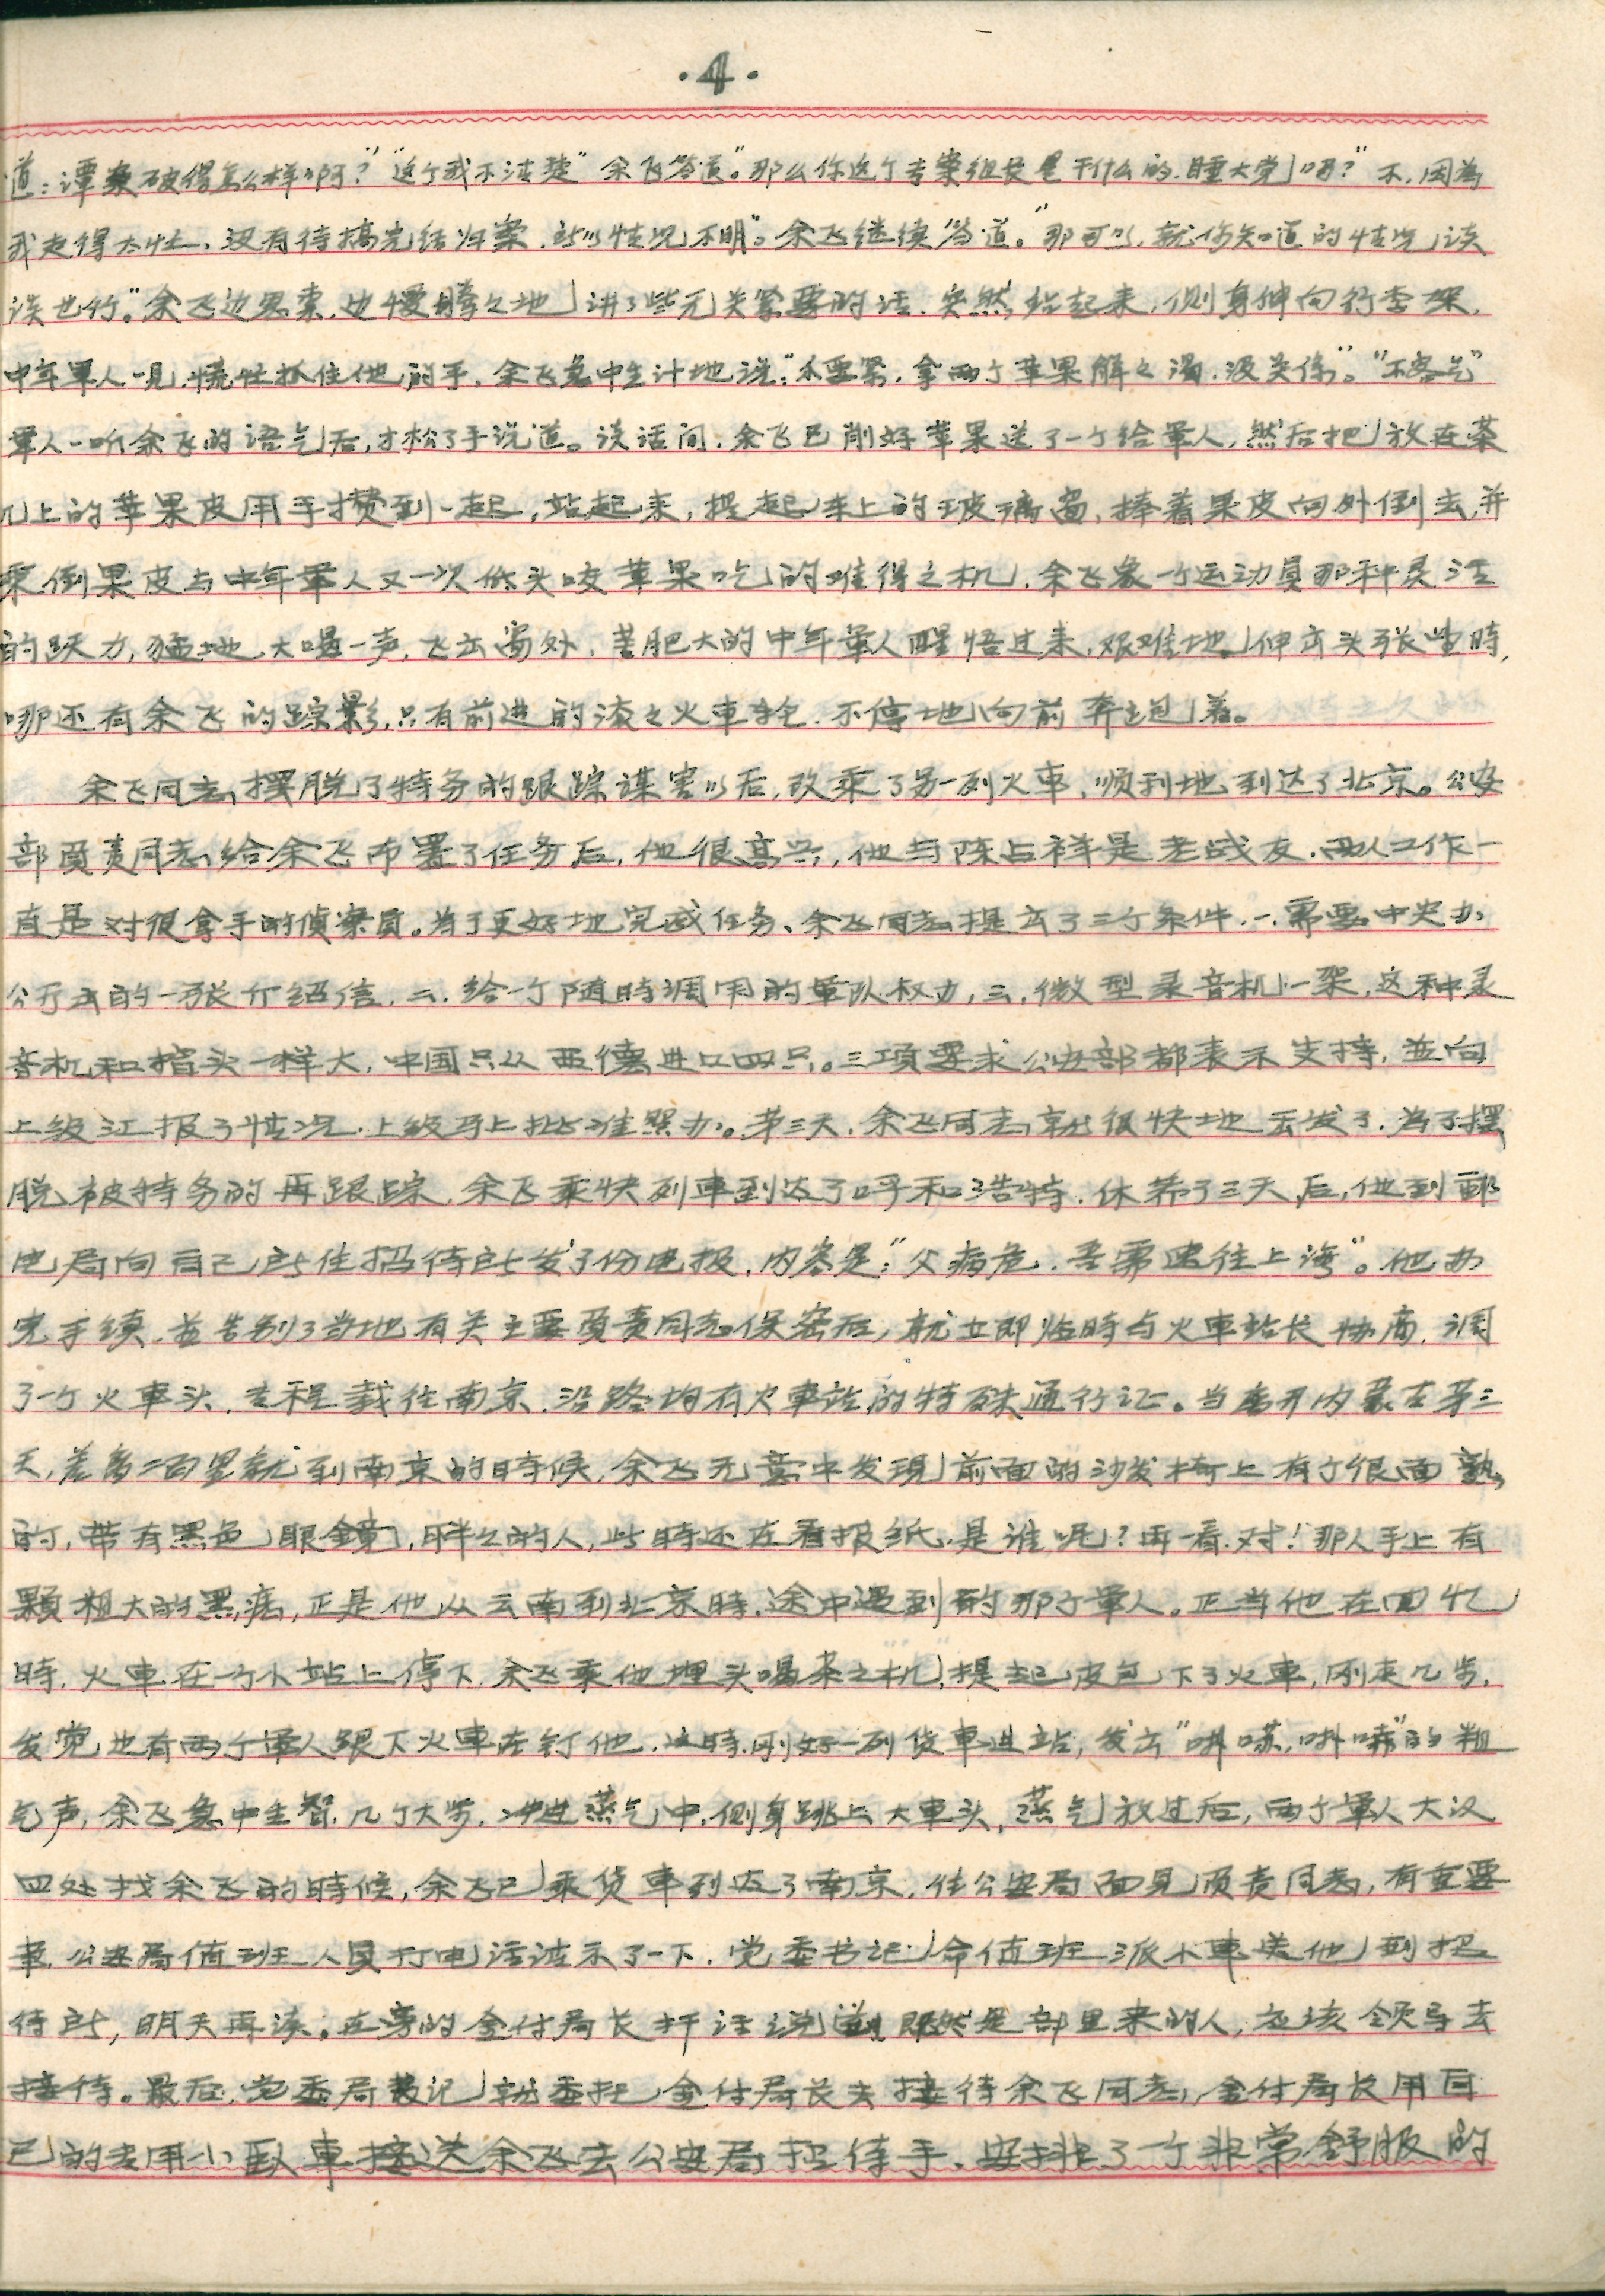 ·4·
道：谭案破得怎么样啊？”“这个我不清楚”余飞答道。“那么你这个专案组长是干什么的，睡大觉吗？”不，因為
我走得太忙，没有待搞完结归案，所以情况不明”。余飞继续答道。“那可以，就你知道的情况谈
谈也行。”余飞边思索，边慢腾々地讲了些无关紧要的话，突然站起来，侧身伸向行李架，
中年軍人一見，慌忙抓住他的手，余飞急中生计地说：“不要紧，拿两个苹果解々渴，没关係”。“不客气”
軍人一听余飞的语气后，才松了手说道。谈话间，余飞已削好苹果送了一个给軍人，然后把放在茶
几上的苹果皮用手攒到一起，站起来，提起車上的玻璃窗，捧着果皮向外倒去，并
乘倒果皮与中年軍人又一次低头咬苹果吃的难得之机，余飞象一个运动員那种灵活
的跃力，猛地大喝一声，飞出窗外，等肥大的中年軍人醒悟过来，艰难地伸出头张望時，
哪还有余飞的踪影，只有前进的滚々火車轮，不停地向前奔跑着。
余飞同志摆脱了特务的跟踪谋害以后，改乘了另一列火車，顺利地到达了北京。公安
部負责同志给余飞布署了任务后，他很高兴，他与陈占祥是老战友，两人工作一
直是对很拿手的偵察員。为了更好地完成任务，余飞同志提出了三个条件，一.需要中央办
公厅出的一张介绍信，二.给一个随時调用的軍队权力，三.微型录音机一架，这种录
音机和指头一样大，中国只从西德进口四只。三項要求公安部都表示支持，並向
上级汇报了情况，上级马上批准照办。第三天，余飞同志就很快地出发了，为了摆
脱被特务的再跟踪，余飞乘快列車到达了呼和浩特，休养了三天后，他到郵
电局向自己所住招待所发了份电报，内容是：“父病危，吾需速往上海”。他办
完手续，並告别了当地有关主要負责同志保密后，就立即临時与火車站长协商，调
了一个火車头，专程载往南京，沿路均有火車站的特殊通行证。当离开内蒙古第三
天，差多二百里就到南京的時候，余飞无意中发現前面的沙发椅上有个很面熟
的，带有黑色眼鏡，胖々的人，此時还在看报纸，是谁呢？再一看，对！那人手上有
顆粗大的黑痣，正是他从云南到北京時，途中遇到的那个軍人。正当他在回忆
時，火車在一个小站上停下，余飞乘他埋头喝茶之机，提起皮包下了火車，刚走几步，
发觉也有两个軍人跟下火車在钉他，这時，刚好一列货車进站，发出“哧嗦，哧嗦”的粗
气声，余飞急中生智，几个大步，冲进蒸气中，侧身跳上大車头，蒸气放过后，两个軍人大汉
四处找余飞的時候，余飞已乘货車到达了南京，往公安局面見負责同志，有重要
事，公安局值班人員打电话请示了一下，党委书记命值班派小車送他到招
待所，明天再谈。在旁的金付局长扦话说道既然是部里来的人，应该领导去
接待。最后，党委局書记就委托金付局长去接待余飞同志，金付局长用自
己的专用小臥車接送余飞去公安局招待手，安排了一个非常舒服的